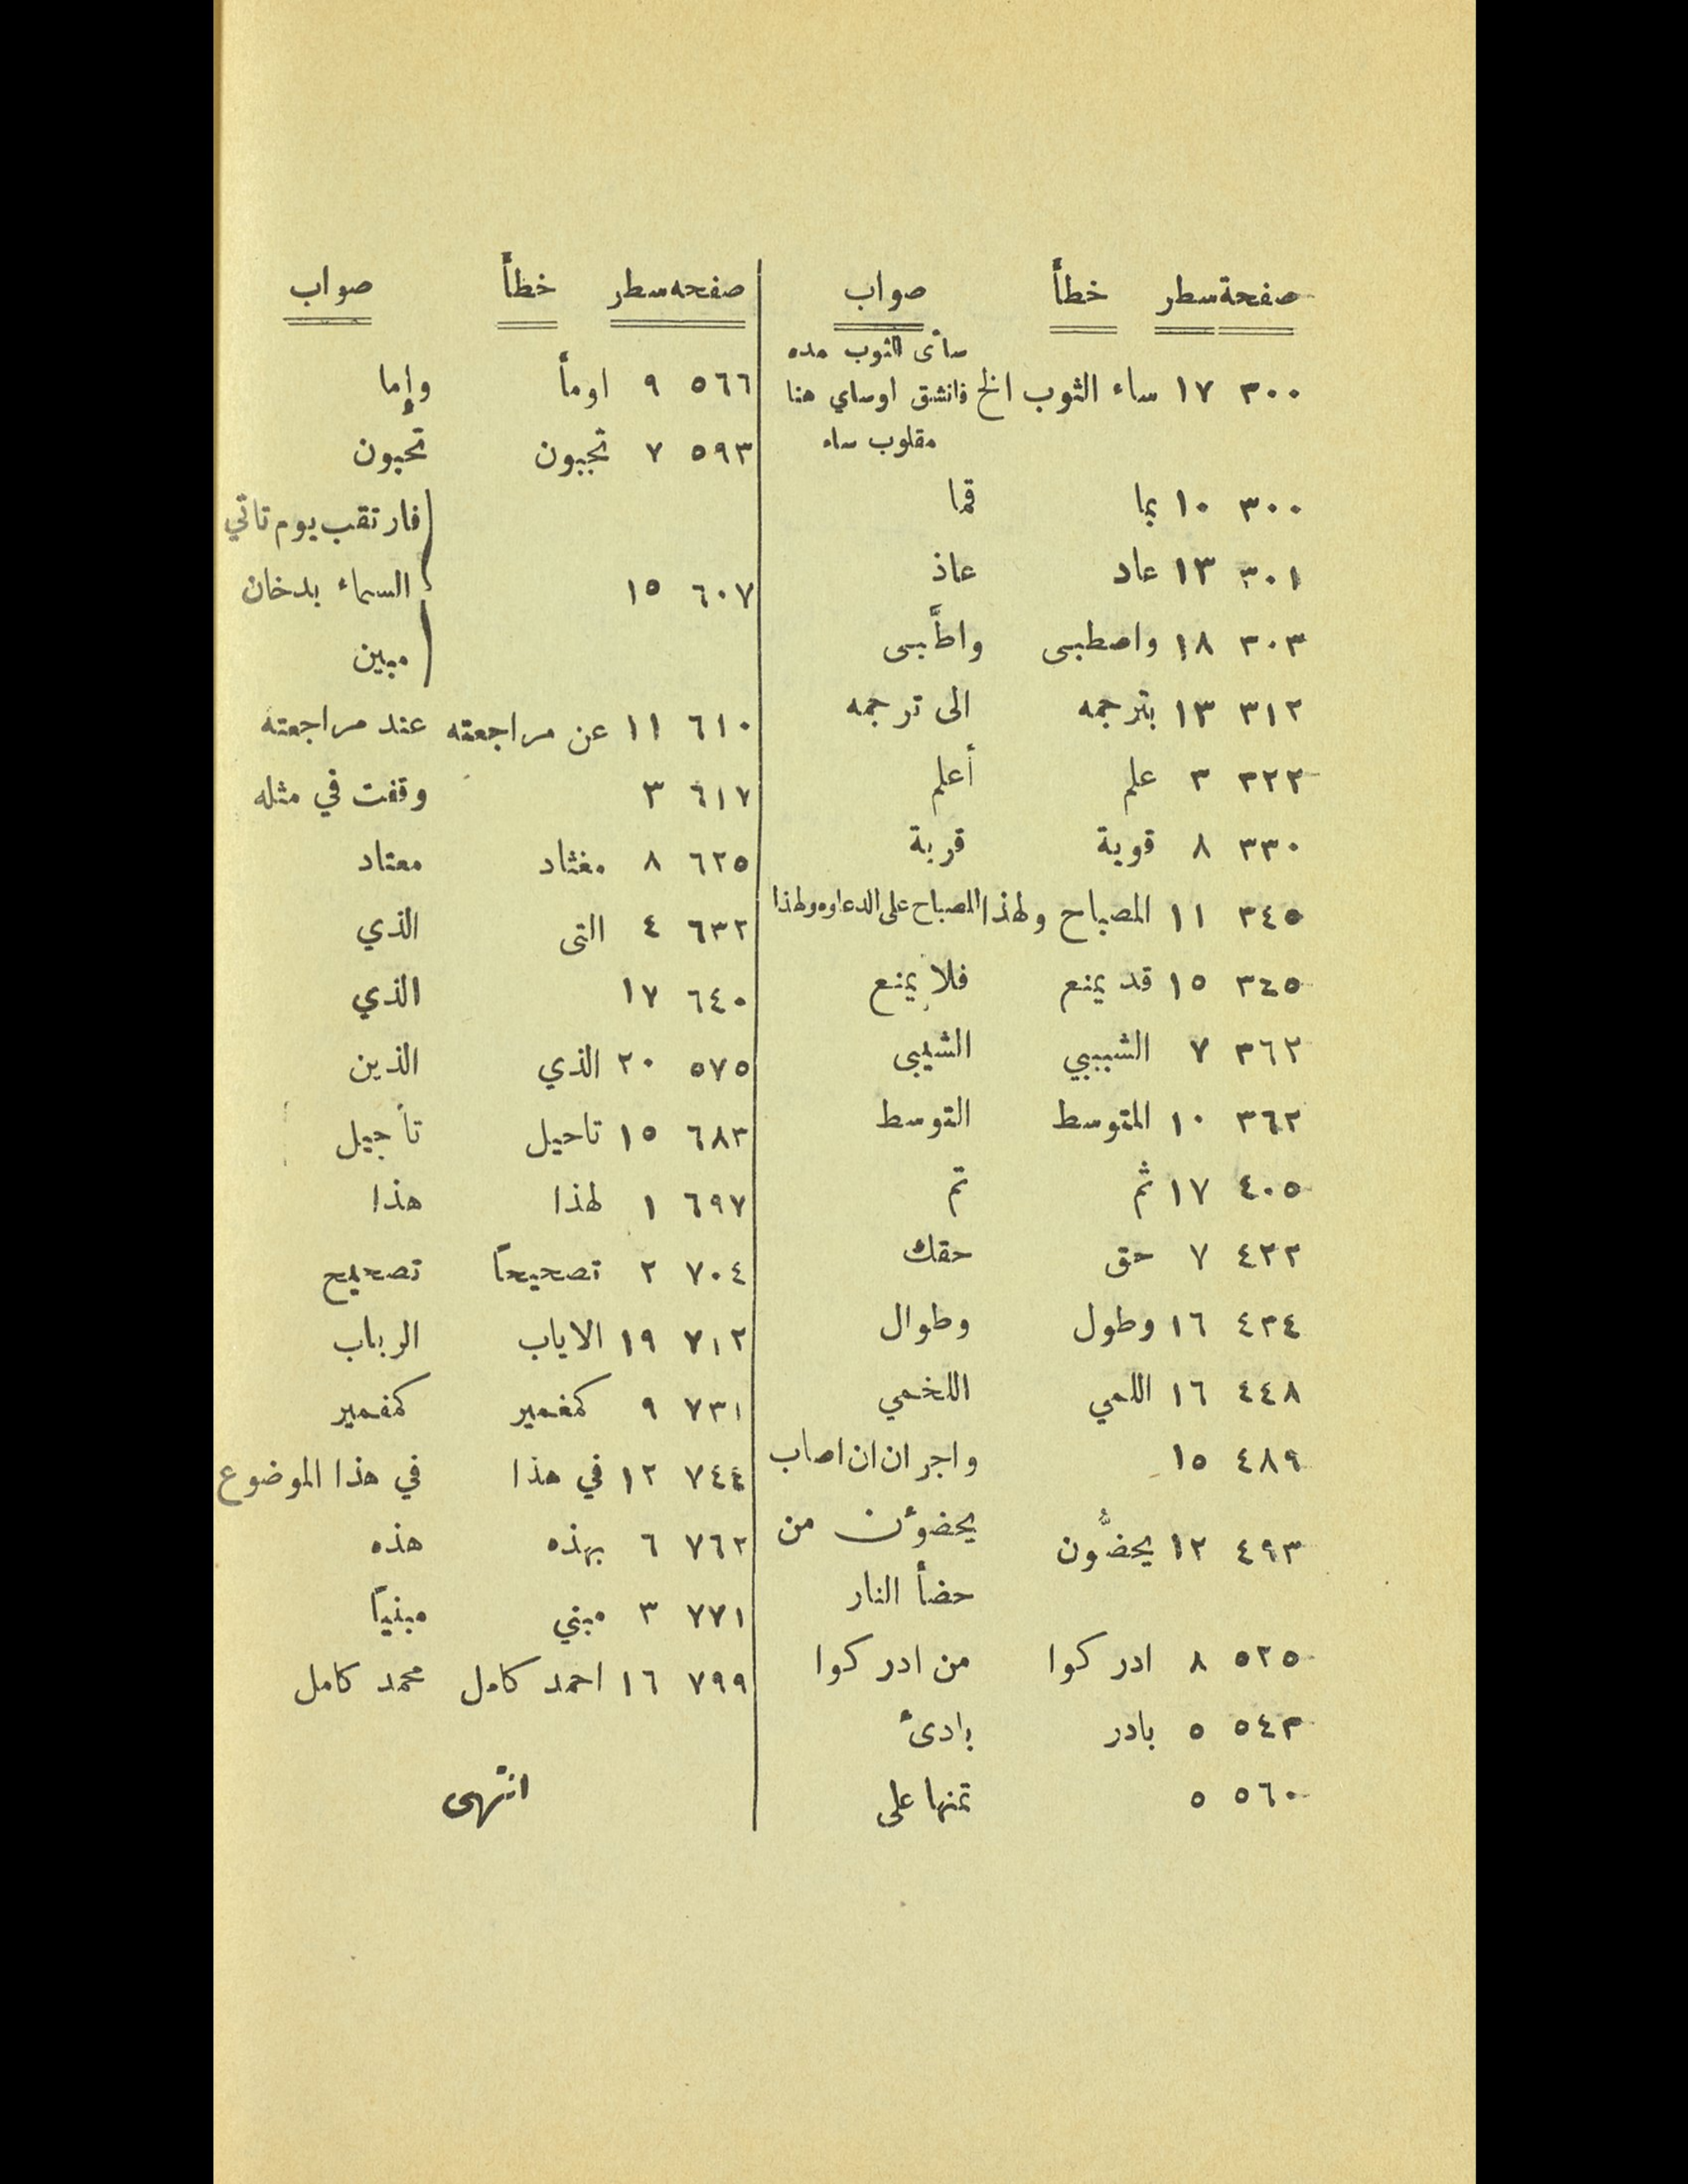 صفحة سطر خطأ صواب
سأى الثوب مده
٣٠٠ ١٧ ساء الثوب الخ فانشق اوساي هنا
مقلوب ساء
٣٠٠ ١٠ بما قما
٣٠١ ١٣ عاد عاذ
٣٠٣ ١٨ واصطبى واطَّبى
٣١٢ ١٣ بترجمه الى ترجمه
٣٢٣ ٣ علم أعلم
٣٣٠ ٨ قوية قربة
٣٤٥ ١١ المصباح ولهذا المصباح على الدعاوه ولهذا
٣٤٥ ١٥ قد يمنع فلا يمنع
٣٦٢ ٧ الشبيبي الشيبى
٣٦٢ ١٠ المتوسط التوسط
٤٠٥ ١٧ ثم تم
٤٢٣ ٧ حق حقك
٤٣٤ ١٦ وطول وطوال
٤٤٨ ١٦ اللمي اللخمي
٤٨٩ ١٥ واجر ان ان اصاب
٤٩٣ ١٢ يحضُّون يحضوٴن من
حضأ النار
٥٢٥ ٨ ادركوا من ادركوا
٥٤٣ ٥ بادر بادئ
٥٦٠ ٥ تمنها على
صفحه سطر خطأ صواب
٥٦٦ ٩ اومأ وإما
٥٩٣ ٧ تجبون تحبون
فارتقب يوم تاتي
٦٠٧ ١٥ السماء بدخان
مبين
٦١٠ ١١ عن مراجعته عند مراجعته
٦١٧ ٣ وقفت في مثله
٦٢٥ ٨ مغثاد معتاد
٦٣٢ ٤ التى الذي
٦٤٠ ١٧ الذي
٥٧٥ ٢٠ الذي الذين
٦٨٣ ١٥ تاحيل تأجيل
٦٩٧ ١ لهذا هذا
٧٠٤ ٢ تصحيحاً تصحيح
٧١٢ ١٩ الاياب الرباب
٧٣١ ٩ كمغمير كمفمير
٧٤٤ ١٢ في هذا في هذا الموضوع
٧٦٢ ٦ بهذه هذه
٧٧١ ٣ مبني مبنياً
٧٩٩ ١٦ احمد كامل محمد كامل
انتهى